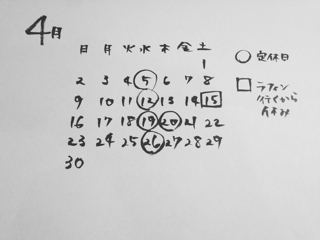 4月
日 月 火 水 木 金 土
1
2 3 4 5 6 7 8
9 10 11 12 13 14 15
16 17 18 19 20 21 22
23 24 25 26 27 28 29
30
定休日
ラフィン
行くから
お休み